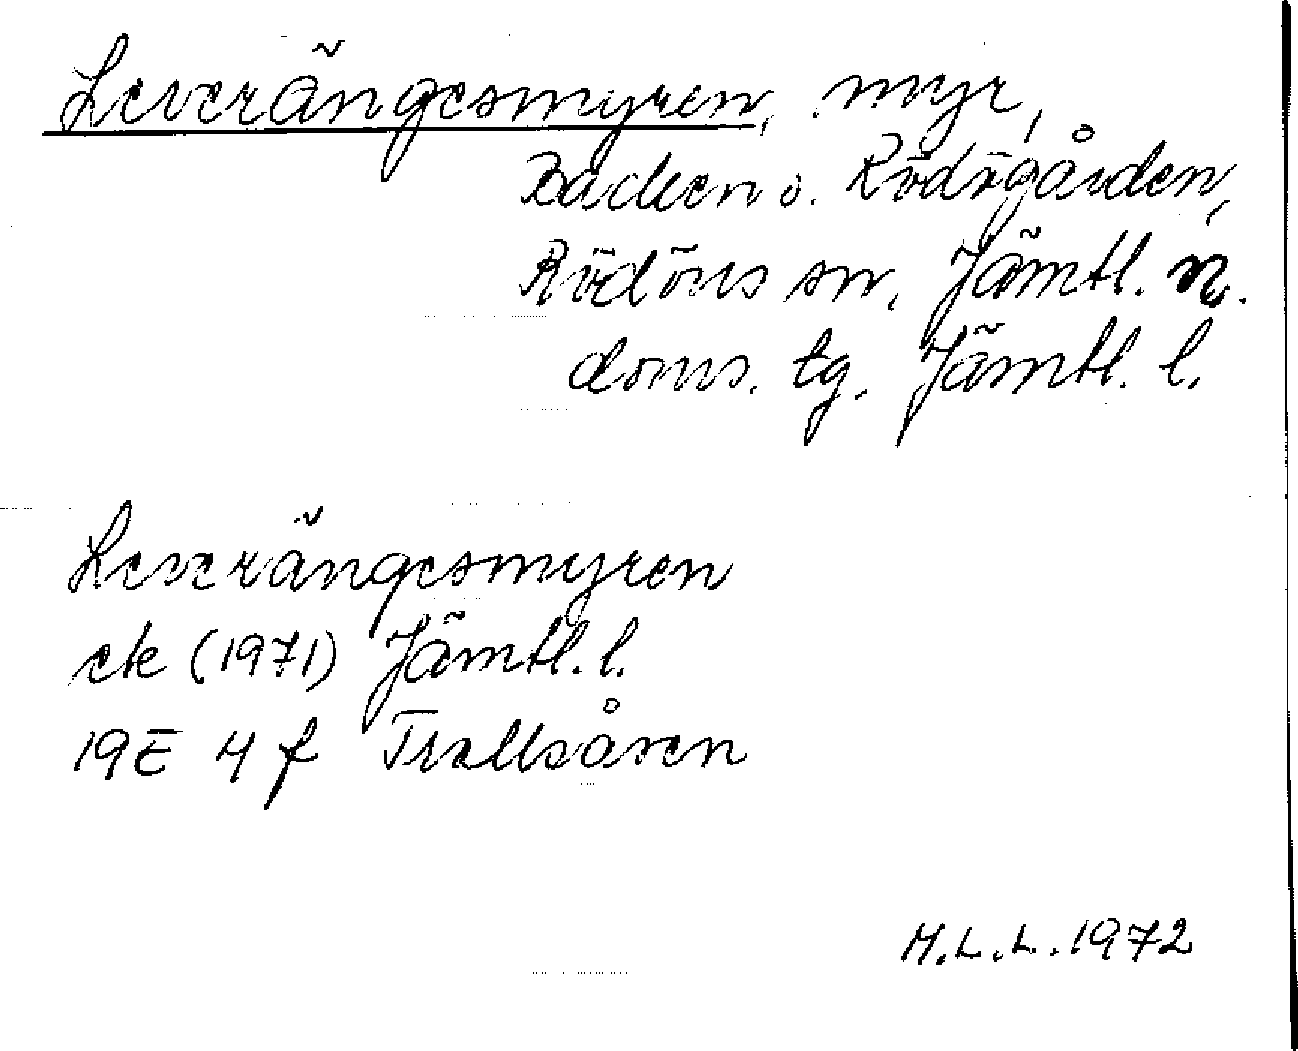 Leverängesmyren, myr,
Backen o. Rödögården,
Rödöns sn, Jämtl. n.
doms. tg. Jämtl. l.
Leverängesmyren
ek (1971) Jämtl. l.
19E 4 f Trallsåsen
M.L.L. 1972